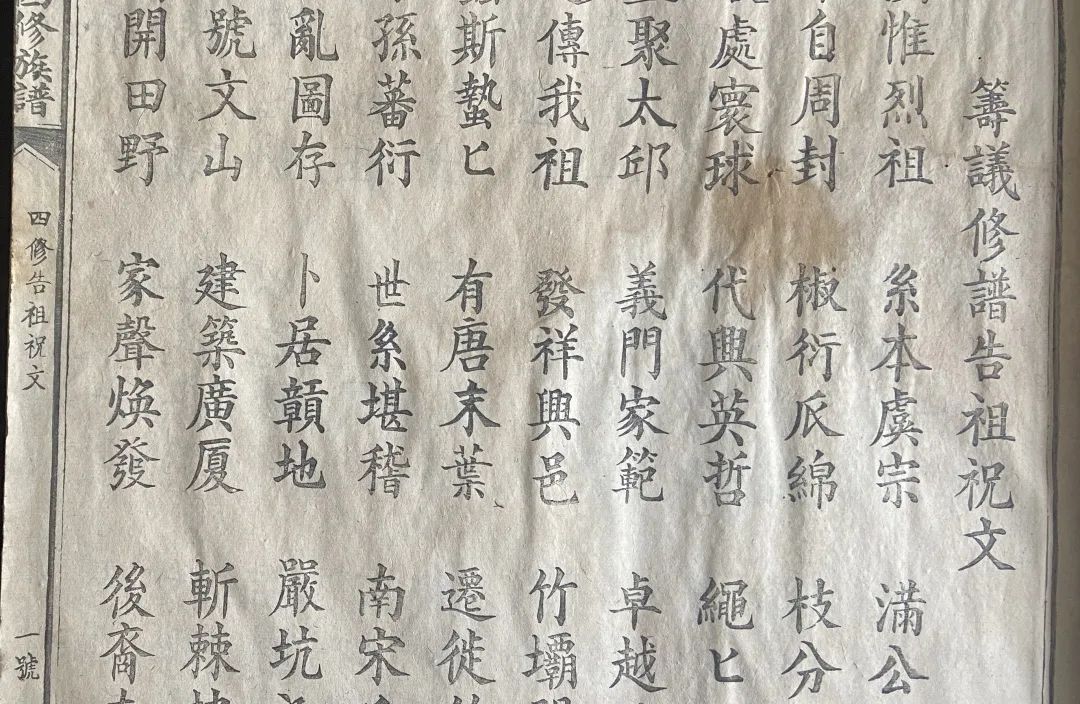 籌議修譜告祖祝文
惟烈祖 糸本虞宗 滿公
自周封 椒衍𠂢綿 枝分
處寰球 代興英哲 繩匕
聚太邱 義門家範 卓越
傳我祖 發祥興邑 竹壩
斯蟄匕 有唐末葉 遷徙
孫蕃衍 世系堪稽 南宋
亂圖存 卜居贑地 嚴坑
號文山 建築廣厦 斬棘
開田野 家聲煥發 後裔
四修族譜
四修告祖祝文
一號